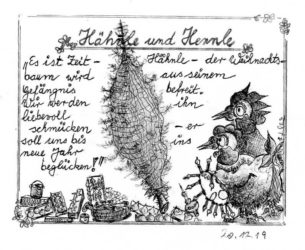 Hähnle und Hennle
„Es ist Zeit – Hähnle – der Weihnachts-
baum wird aus seinem
Gefängnis befreit.
Wir werden ihn
liebevoll
schmücken – er
soll uns bis ins
neue Jahr
beglücken!"
20.12.19